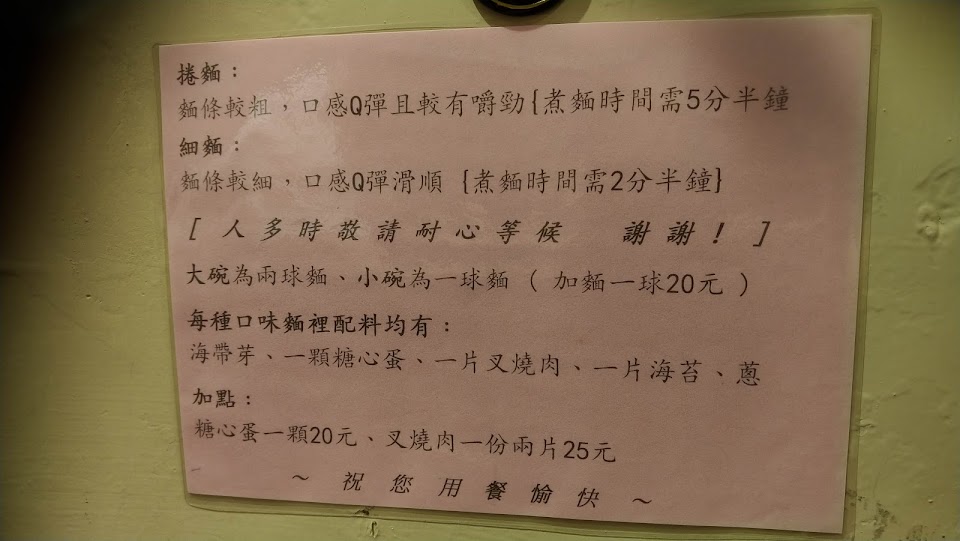 捲麵：
麵條較粗，口感Q彈且較有嚼勁{煮麵時間需5分半鐘
細麵：
麵條較細，口感Q彈滑順 {煮麵時間需2分半鐘}
[ 人多時敬請耐心等候 謝謝！ ]
大碗為兩球麵、小碗為一球麵 ( 加麵一球20元 )
每種口味麵裡配料均有：
海帶芽、一顆糖心蛋、一片叉燒肉、一片海苔、蔥
加點：
糖心蛋一顆20元、叉燒肉一份兩片25元
~ 祝您用餐愉快 ~